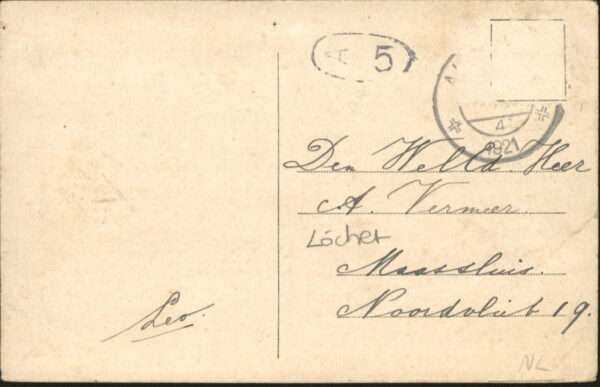 A 5
4
1921
Den Weled. Heer
A. Vermeer.
Löcher
Maassluis.
Noordvliet 19.
Leo.
NL